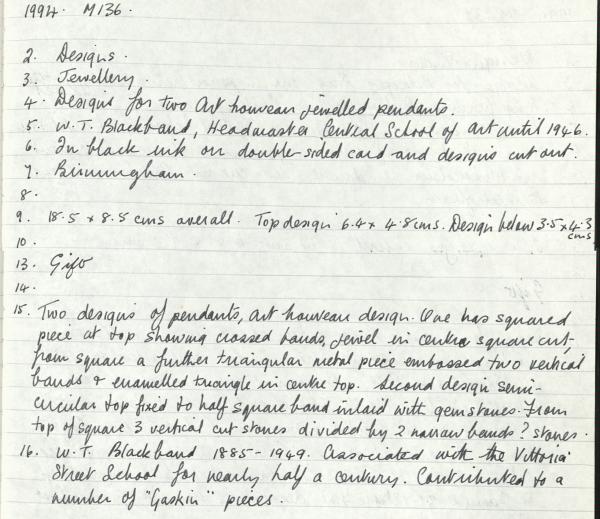 1994. M136.
2. Designs.
3. Jewellery.
4. Designs for two Art nouveau jewelled pendants.
5. W.T. Blackband, Headmaster Central School of Art until 1946.
6. In black ink on double-sided card and designs cut out.
7. Birmingham.
8.
9. 18.5 x 8.5 cms overall. Top design 6.4 x 4.8 cms. Design below 3.5 x 4.3 cms
10.
13. Gift
14.
15. Two designs of pendants, art nouveau design. One has squared
piece at top showing crossed bands, jewel in centre square cut,
from square a further triangular metal piece embossed two vertical
bands & enamelled triangle in centre top. Second design semi-
circular top fixed to half square band inlaid with gemstones. From
top of square 3 vertical cut stones divided by 2 narrow bands ? stones.
16. W.T. Blackband 1885-1949. Associated with the Vittoria
Street School for nearly half a century. Contributed to a
number of "Gaskin" pieces.